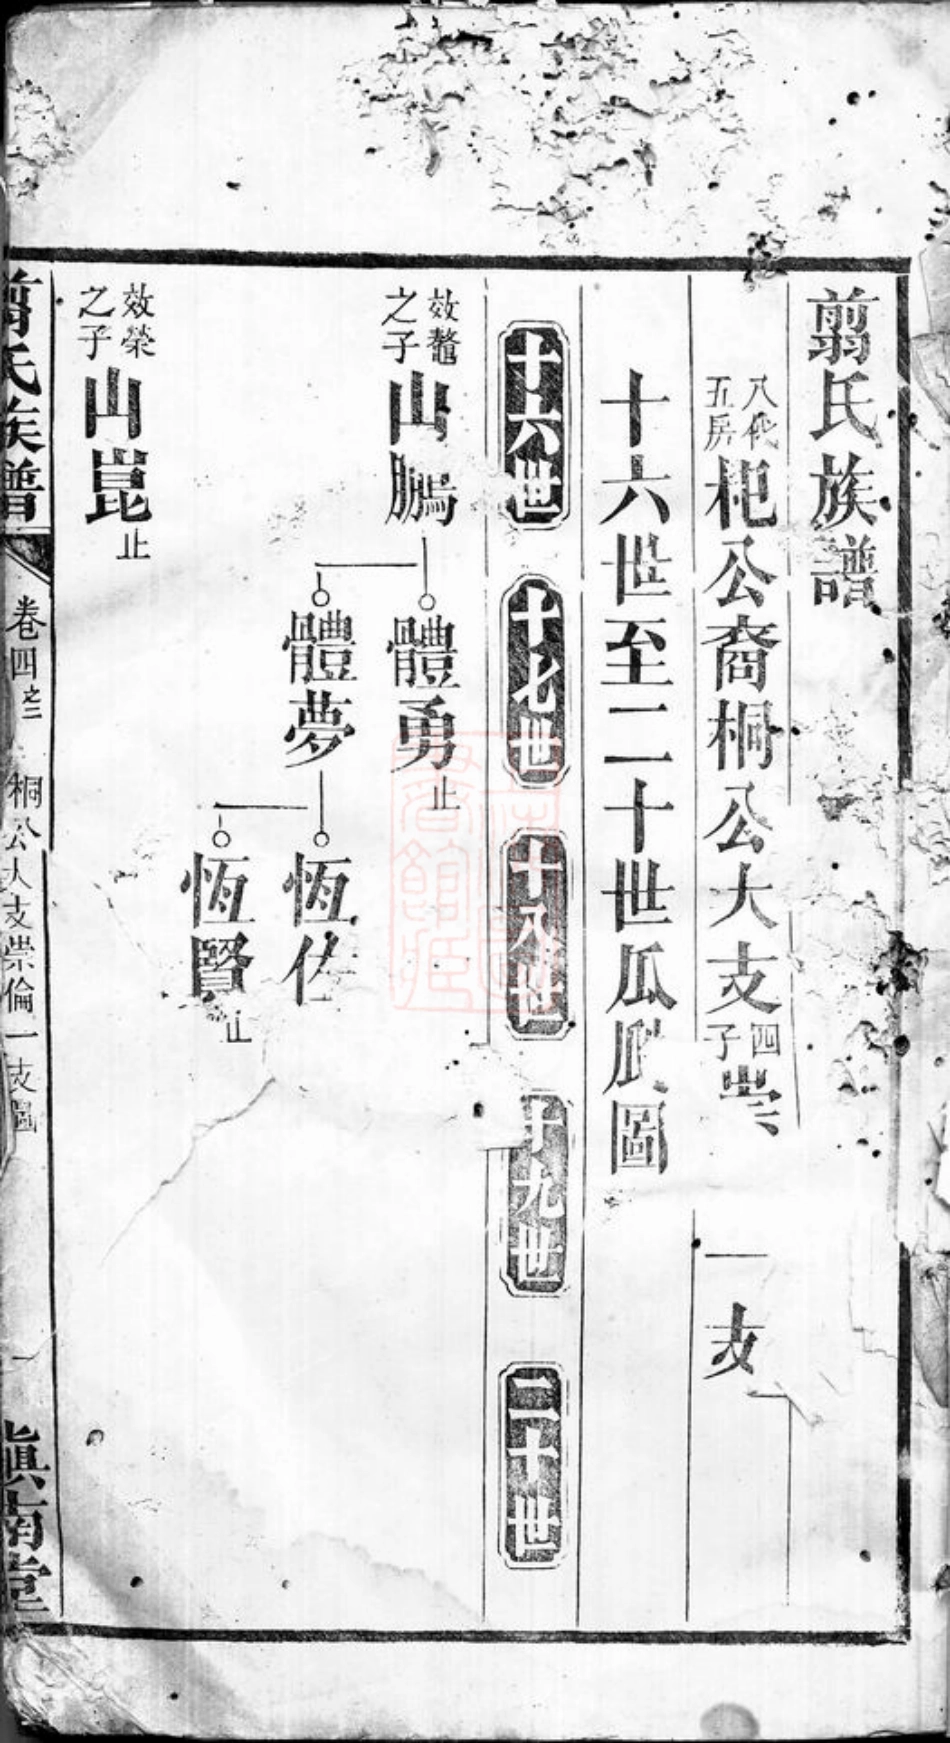 翦氏族譜
八代五房杞公裔桐公大支四子崇
一支
十六世至二十世瓜瓞圖
十六世
十七世
十八世
十九世
二十世
效鼇之子山鵬
體勇止
體夢
恆佐
恆賢止
效榮之子山崑止
翦氏族譜
卷四之二
桐公大支崇倫一支圖
一
滇南堂